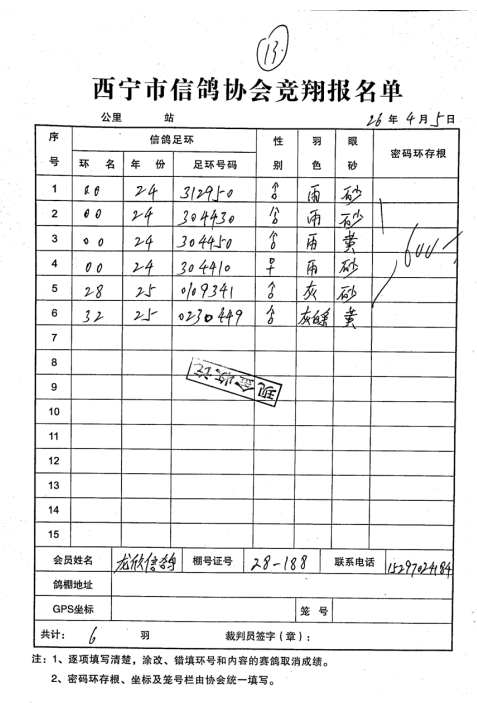 13
西宁市信鸽协会竞翔报名单
公里 站 26年4月5日
序号 信鸽足环 性别 羽色 眼砂 密码环存根
环名 年份 足环号码
1 00 24 312950 雨 砂
2 00 24 304430 雨 砂
3 00 24 304450 雨 黄
4 00 24 304410 雨 砂
5 28 25 0109341 灰 砂
6 32 25 0230449 黄
7
8
现金收讫
9
10
11
12
13
14
15
会员姓名 龙欣信鸽 棚号证号 28-188 联系电话 15297024184
鸽棚地址
GPS坐标 笼号
共计: 6 羽 裁判员签字(章):
注:1、逐项填写清楚,涂改、错填环号和内容的赛鸽取消成绩。
2、密码环存根、坐标及笼号栏由协会统一填写。